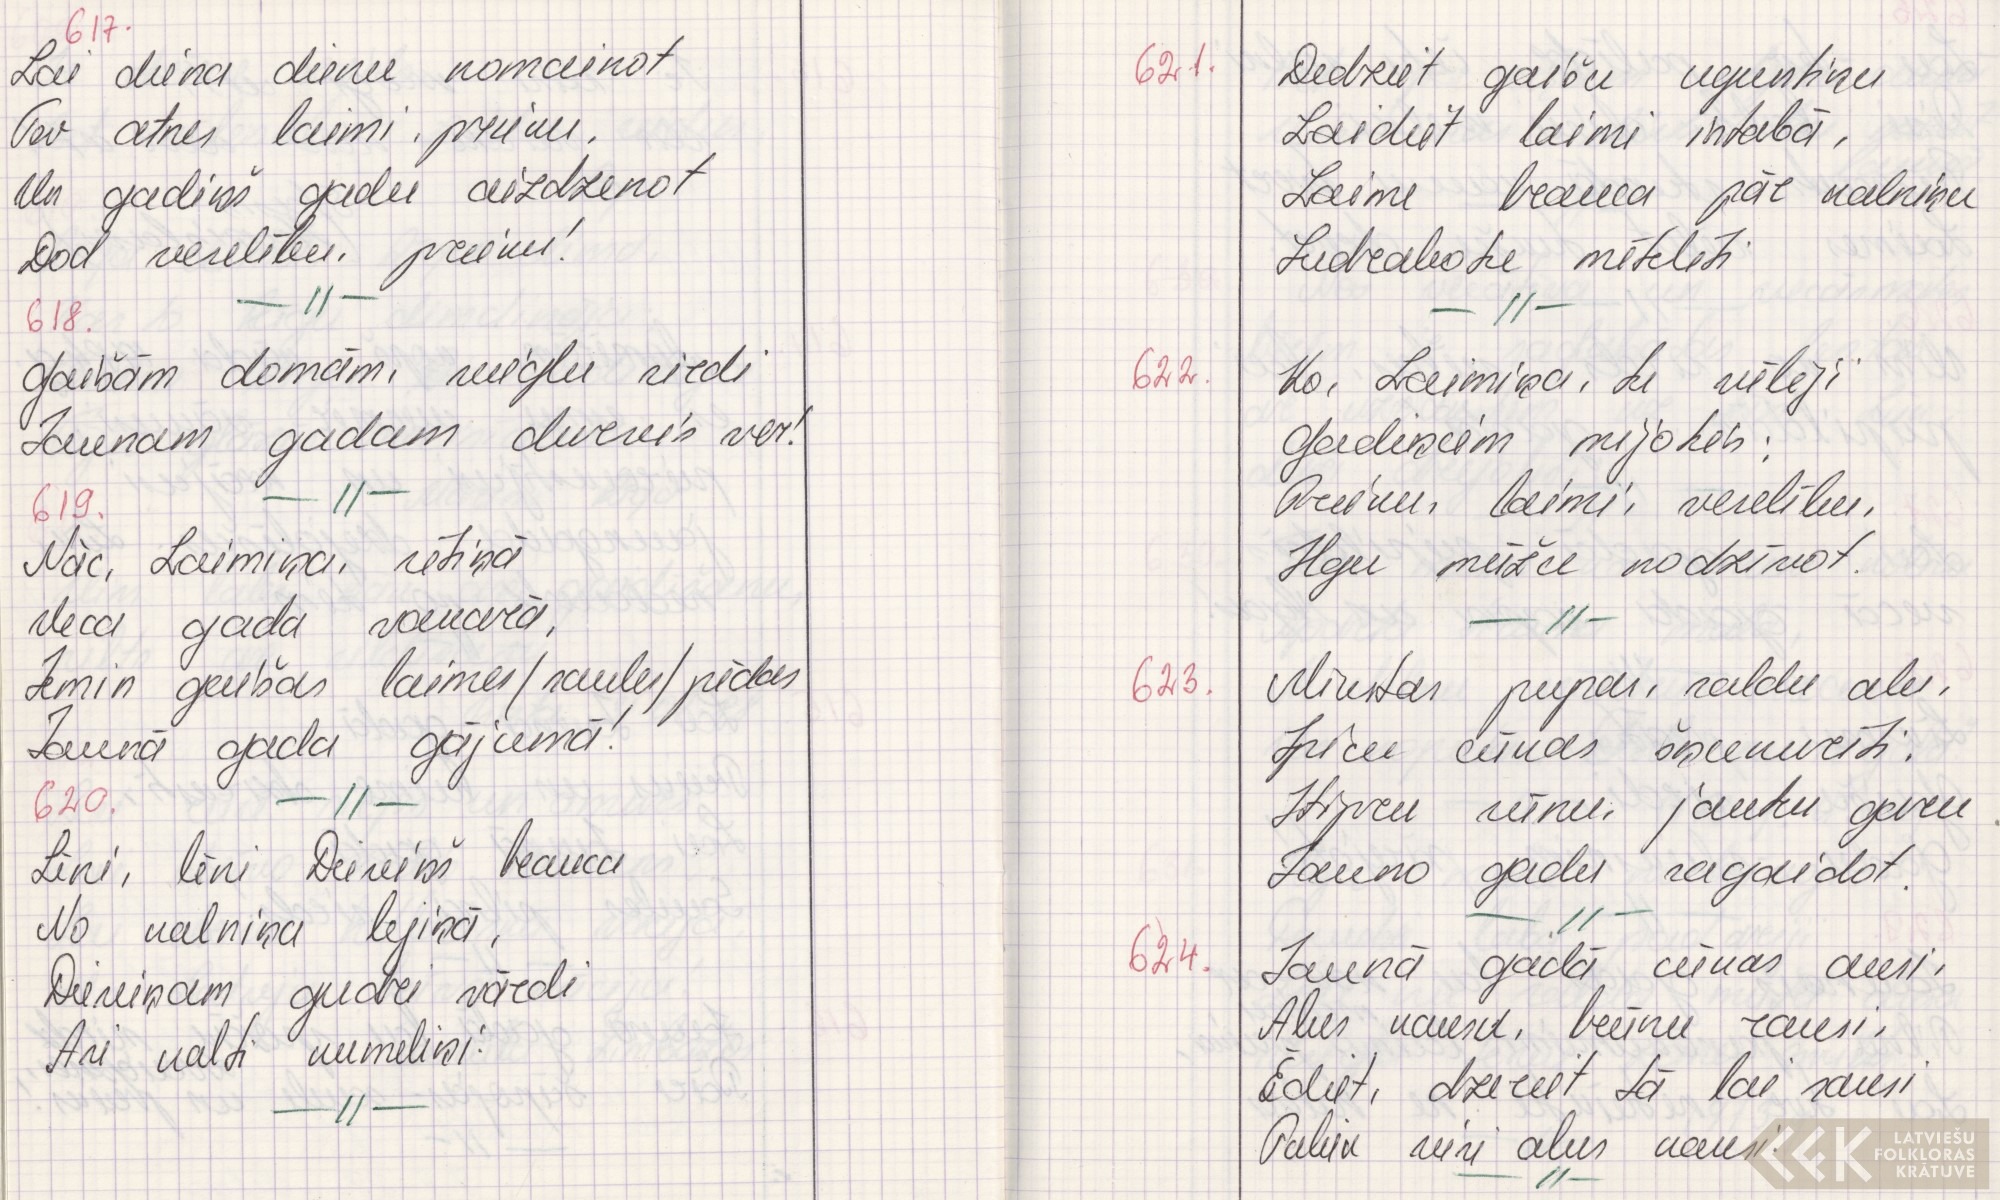 617.
Lai diena dienu nomainot
Tev atnes laimi, prieku,
Un gadiņš gadu aizdzenot
Dod veselību, prieku!
— // —
618.
Gaišām domām, vieglu sirdi
Jaunam gadam durvis ver!
— // —
619.
Nāc, Laimiņa, sētiņā
Veca gada vakarā,
Iemin gaišas laimes/saules/pēdas
Jaunā gada gājumā!
— // —
620.
Lēni, lēni Dieviņš brauca
No kalniņa lejiņā,
Dieviņam gudri vārdi
Asi kalti kumeliņi.
— // —
621.
Dedziet gaišu uguntiņu
Laidiet laimi istabā,
Laime brauca pār kalniņu
Sudraboti mētelīti
— // —
622.
Ko, Laimiņa, tu vēlēji
Gadiņam mijoties:
Prieku, laimi, veselību,
Ilgu mūžu nodzīvot.
— // —
623.
Miestas pupas, saldu alu,
Spicu cūkas šņukurīti,
Stipru sūnu, jauku garu
Jauno gadu sagaidot.
— // —
624.
Jaunā gadā cūkas ausi,
Alus kausu, brūnu rausi,
Ēdiet, dzeriet tā lai sausi
Paliek visi alus kausi.
— // —
LATVIEŠU
FOLKLORAS
KRĀTUVE